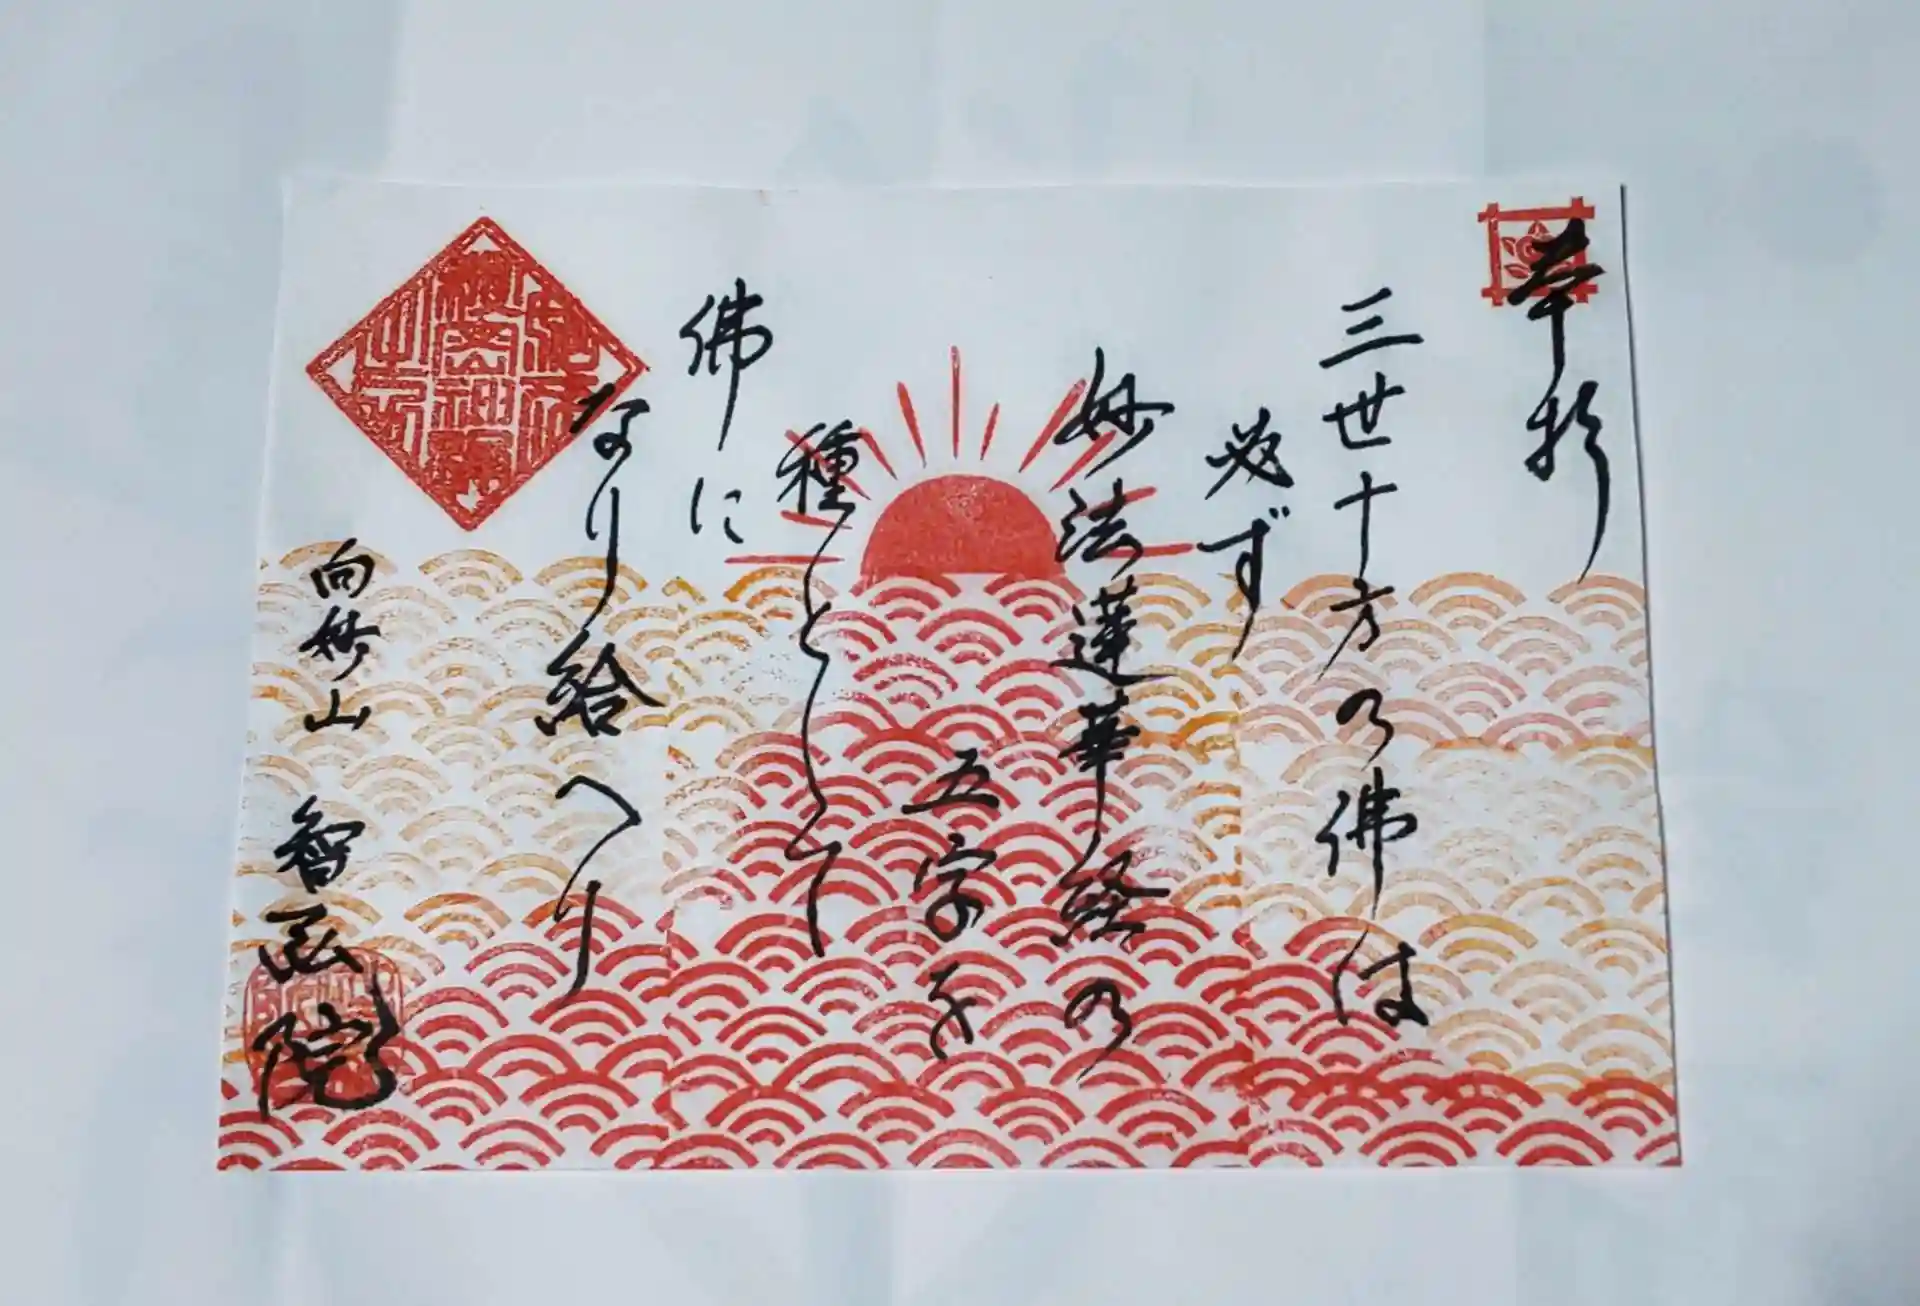 奉拝
三世十方の佛は
必ず
妙法蓮華経の
五字を
種として
佛に
なり給へり
向妙山 智弘院